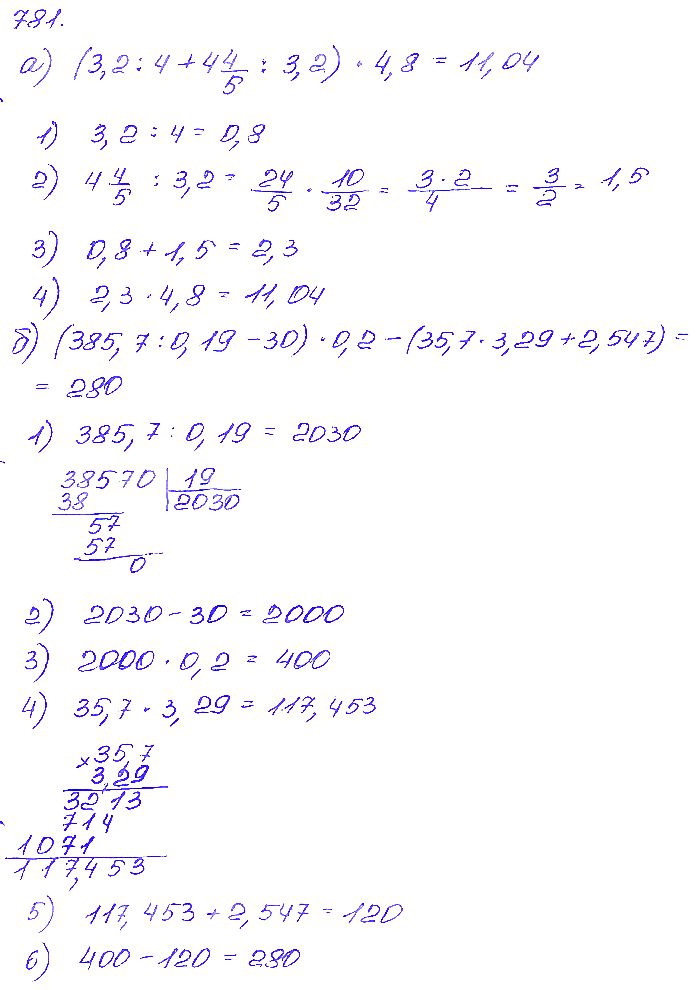 781.
а) (3,2 : 4 + 4 4/5 : 3,2) · 4,8 = 11,04
1) 3,2 : 4 = 0,8
2) 4 4/5 : 3,2 = 24/5 · 10/32 = 3·2/4 = 3/2 = 1,5
3) 0,8 + 1,5 = 2,3
4) 2,3 · 4,8 = 11,04
б) (385,7 : 0,19 - 30) · 0,2 - (35,7 · 3,29 + 2,547) =
= 280
1) 385,7 : 0,19 = 2030
38570 | 19
38 2030
57
57
0
2) 2030 - 30 = 2000
3) 2000 · 0,2 = 400
4) 35,7 · 3,29 = 117,453
× 35,7
3,29
3213
714
1071
117,453
5) 117,453 + 2,547 = 120
6) 400 - 120 = 280